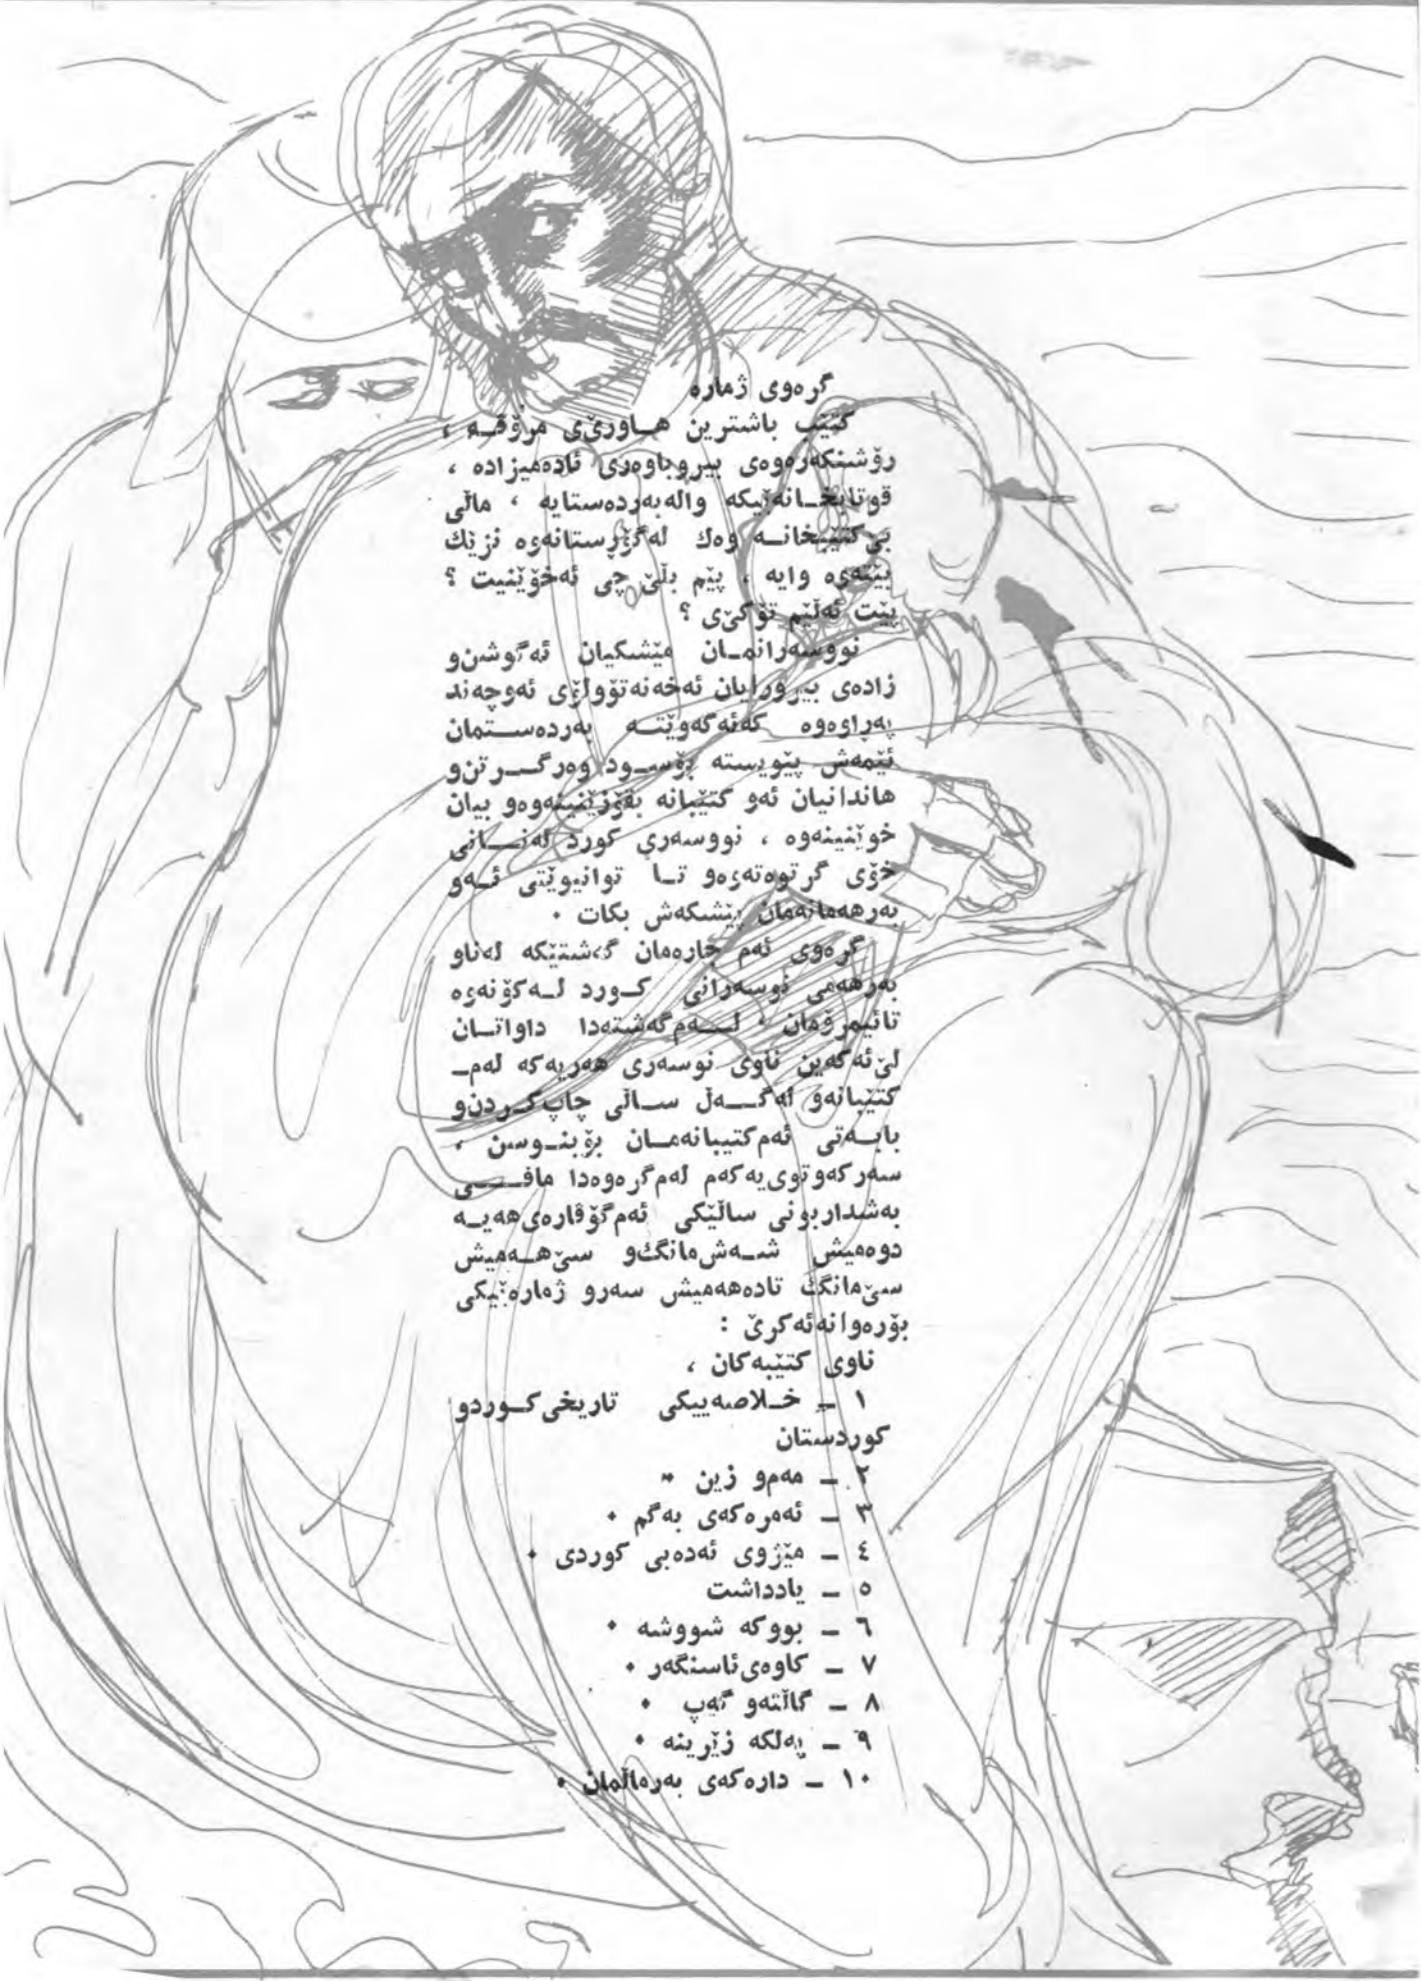 گرەوی ژمارە
کتێب باشترین هـاوڕێی مرۆڤـە ،
رۆشنکەرەوەی بیروباوەری ئادەمیزادە ،
قوتابخـانەێیکە والەبەردەستایە ، ماڵی
بێ کتێبخانـە وەك لەگۆڕستانەوە نزێك
بێتەوە وایە ، پێم بڵێ چی ئەخوێنیت ؟
پێت ئەڵێم تۆ کێی ؟
نووسەرانمـان مێشکیان ئەگوشن‌و
زادەی بیرورایان ئەخەنە‌تۆولوێی ئەوچەند
پەڕاوەوە کەئەگەوێتـە بەردەسـتمان
ئێمەش پێویستە بۆسـود وەرگـرتن‌و
هاندانیان ئەو کتێبانە بقۆزێنینەوەو بیان
خوێنینەوە ، نووسەری کورد لەنـانی
خۆی گرتوەتەوەو تـا توانیوێتی ئـەو
بەرهەمانەمان پێشکەش بکات ٠
گرەوی ئەم جارەمان گەشتێکە لەناو
بەرهەمی نوسەرانی کـورد لـەکۆنەوە
تائیمرۆمان ، لـەم‌گەشتەدا داواتـان
لێ‌ئەکەین ناوی نوسەری هەریەکە لەمـ
کتێبانەو لەگـەڵ سـاڵی چاپ‌کـردن‌و
بابـەتی ئەم‌کتیبانەمـان بۆبنـوسن ،
سەرکەوتوی‌یەکەم لەم‌گرەوەدا مافـی
بەشداربونی ساڵێکی ئەم‌گۆڤارەی‌هەیـە
دوەمیش شـەش‌مانگ‌و سێ‌هـەمیش
سێ‌مانگ تادەهەمیش سەرو ژمارەێیکی
بۆرەوانەئەکرێ :
ناوی کتێبەکان ،
١ ـ خـلاصەییکی تاریخی‌کـوردو
کوردستان
٢ ـ مەم‌و زین ٠
٣ ـ ئەمرەکەی بەگم ٠
٤ ـ مێژوی ئەدەبی کوردی ٠
٥ ـ یادداشت
٦ ـ بووکە شووشە ٠
٧ ـ کاوەی‌ئاسنگەر ٠
٨ ـ گاڵتەو گەپ ٠
٩ ـ پەلکە زێرینە ٠
١٠ ـ دارەکەی بەرماڵمان ٠